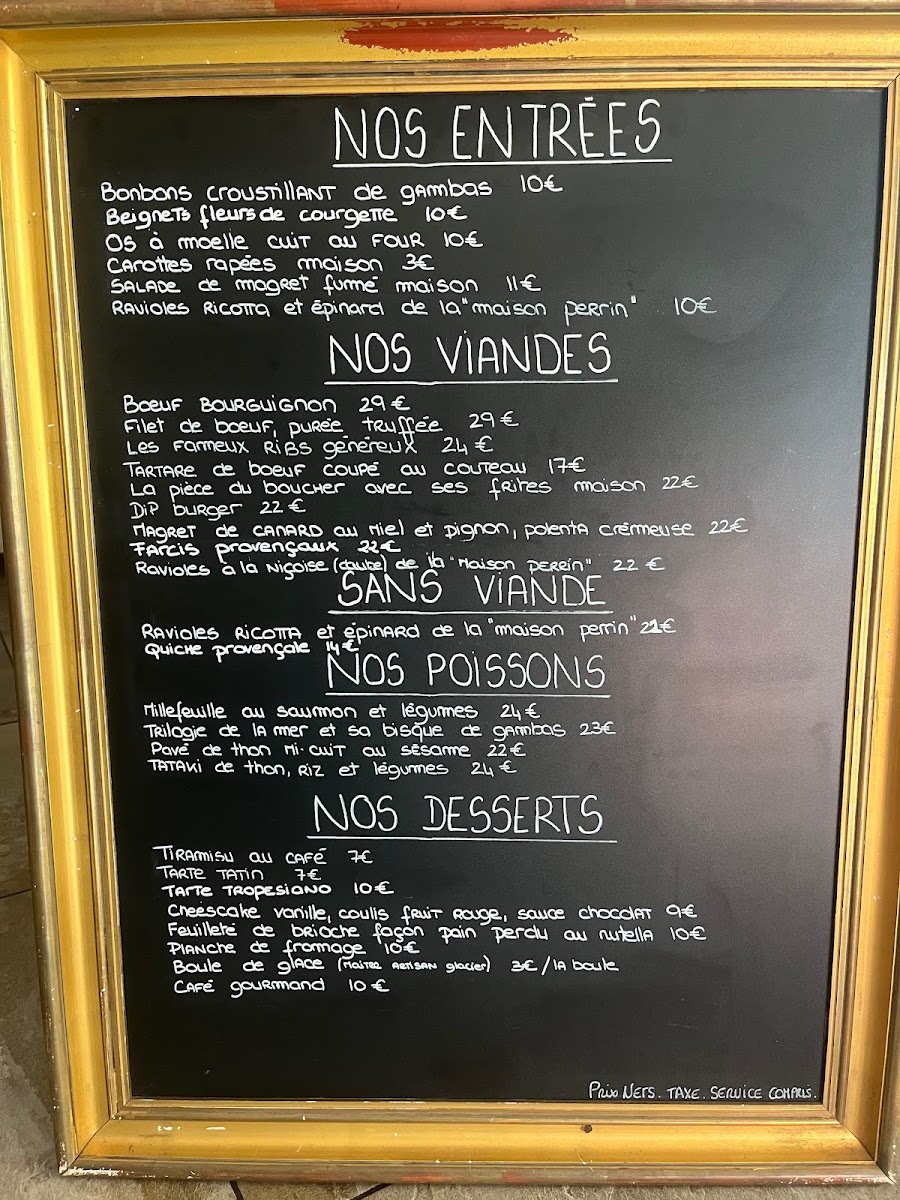 NOS ENTRÉES
Bonbons croustillant de gambas 10€
Beignets fleurs de courgette 10€
Os à moelle cuit au four 10€
Carottes rapées maison 3€
Salade de magret fumé maison 11€
Ravioles ricotta et épinard de la "maison perrin" 10€
NOS VIANDES
Boeuf bourguignon 29€
Filet de boeuf, purée truffée 29€
Les fameux ribs généreux 24€
Tartare de boeuf coupé au couteau 17€
La pièce du boucher avec ses frites maison 22€
Dip burger 22€
Magret de canard au miel et pignon, polenta crémeuse 22€
Farcis provençaux 22€
Ravioles à la niçoise (daube) de la "Maison perrin" 22€
SANS VIANDE
Ravioles ricotta et épinard de la "maison perrin" 21€
Quiche provençale 14€
NOS POISSONS
Millefeuille au saumon et légumes 24€
Trilogie de la mer et sa bisque de gambas 23€
Pavé de thon mi-cuit au sésame 22€
Tataki de thon, riz et légumes 24€
NOS DESSERTS
Tiramisu au café 7€
Tarte tatin 7€
Tarte tropesiano 10€
Cheescake vanille, coulis fruit rouge, sauce chocolat 9€
Feuilleté de brioche façon pain perdu au nutella 10€
Planche de fromage 10€
Boule de glace (maitre artisan glacier) 3€/la boule
Café gourmand 10€
Prix Nets. Taxe. Service compris.